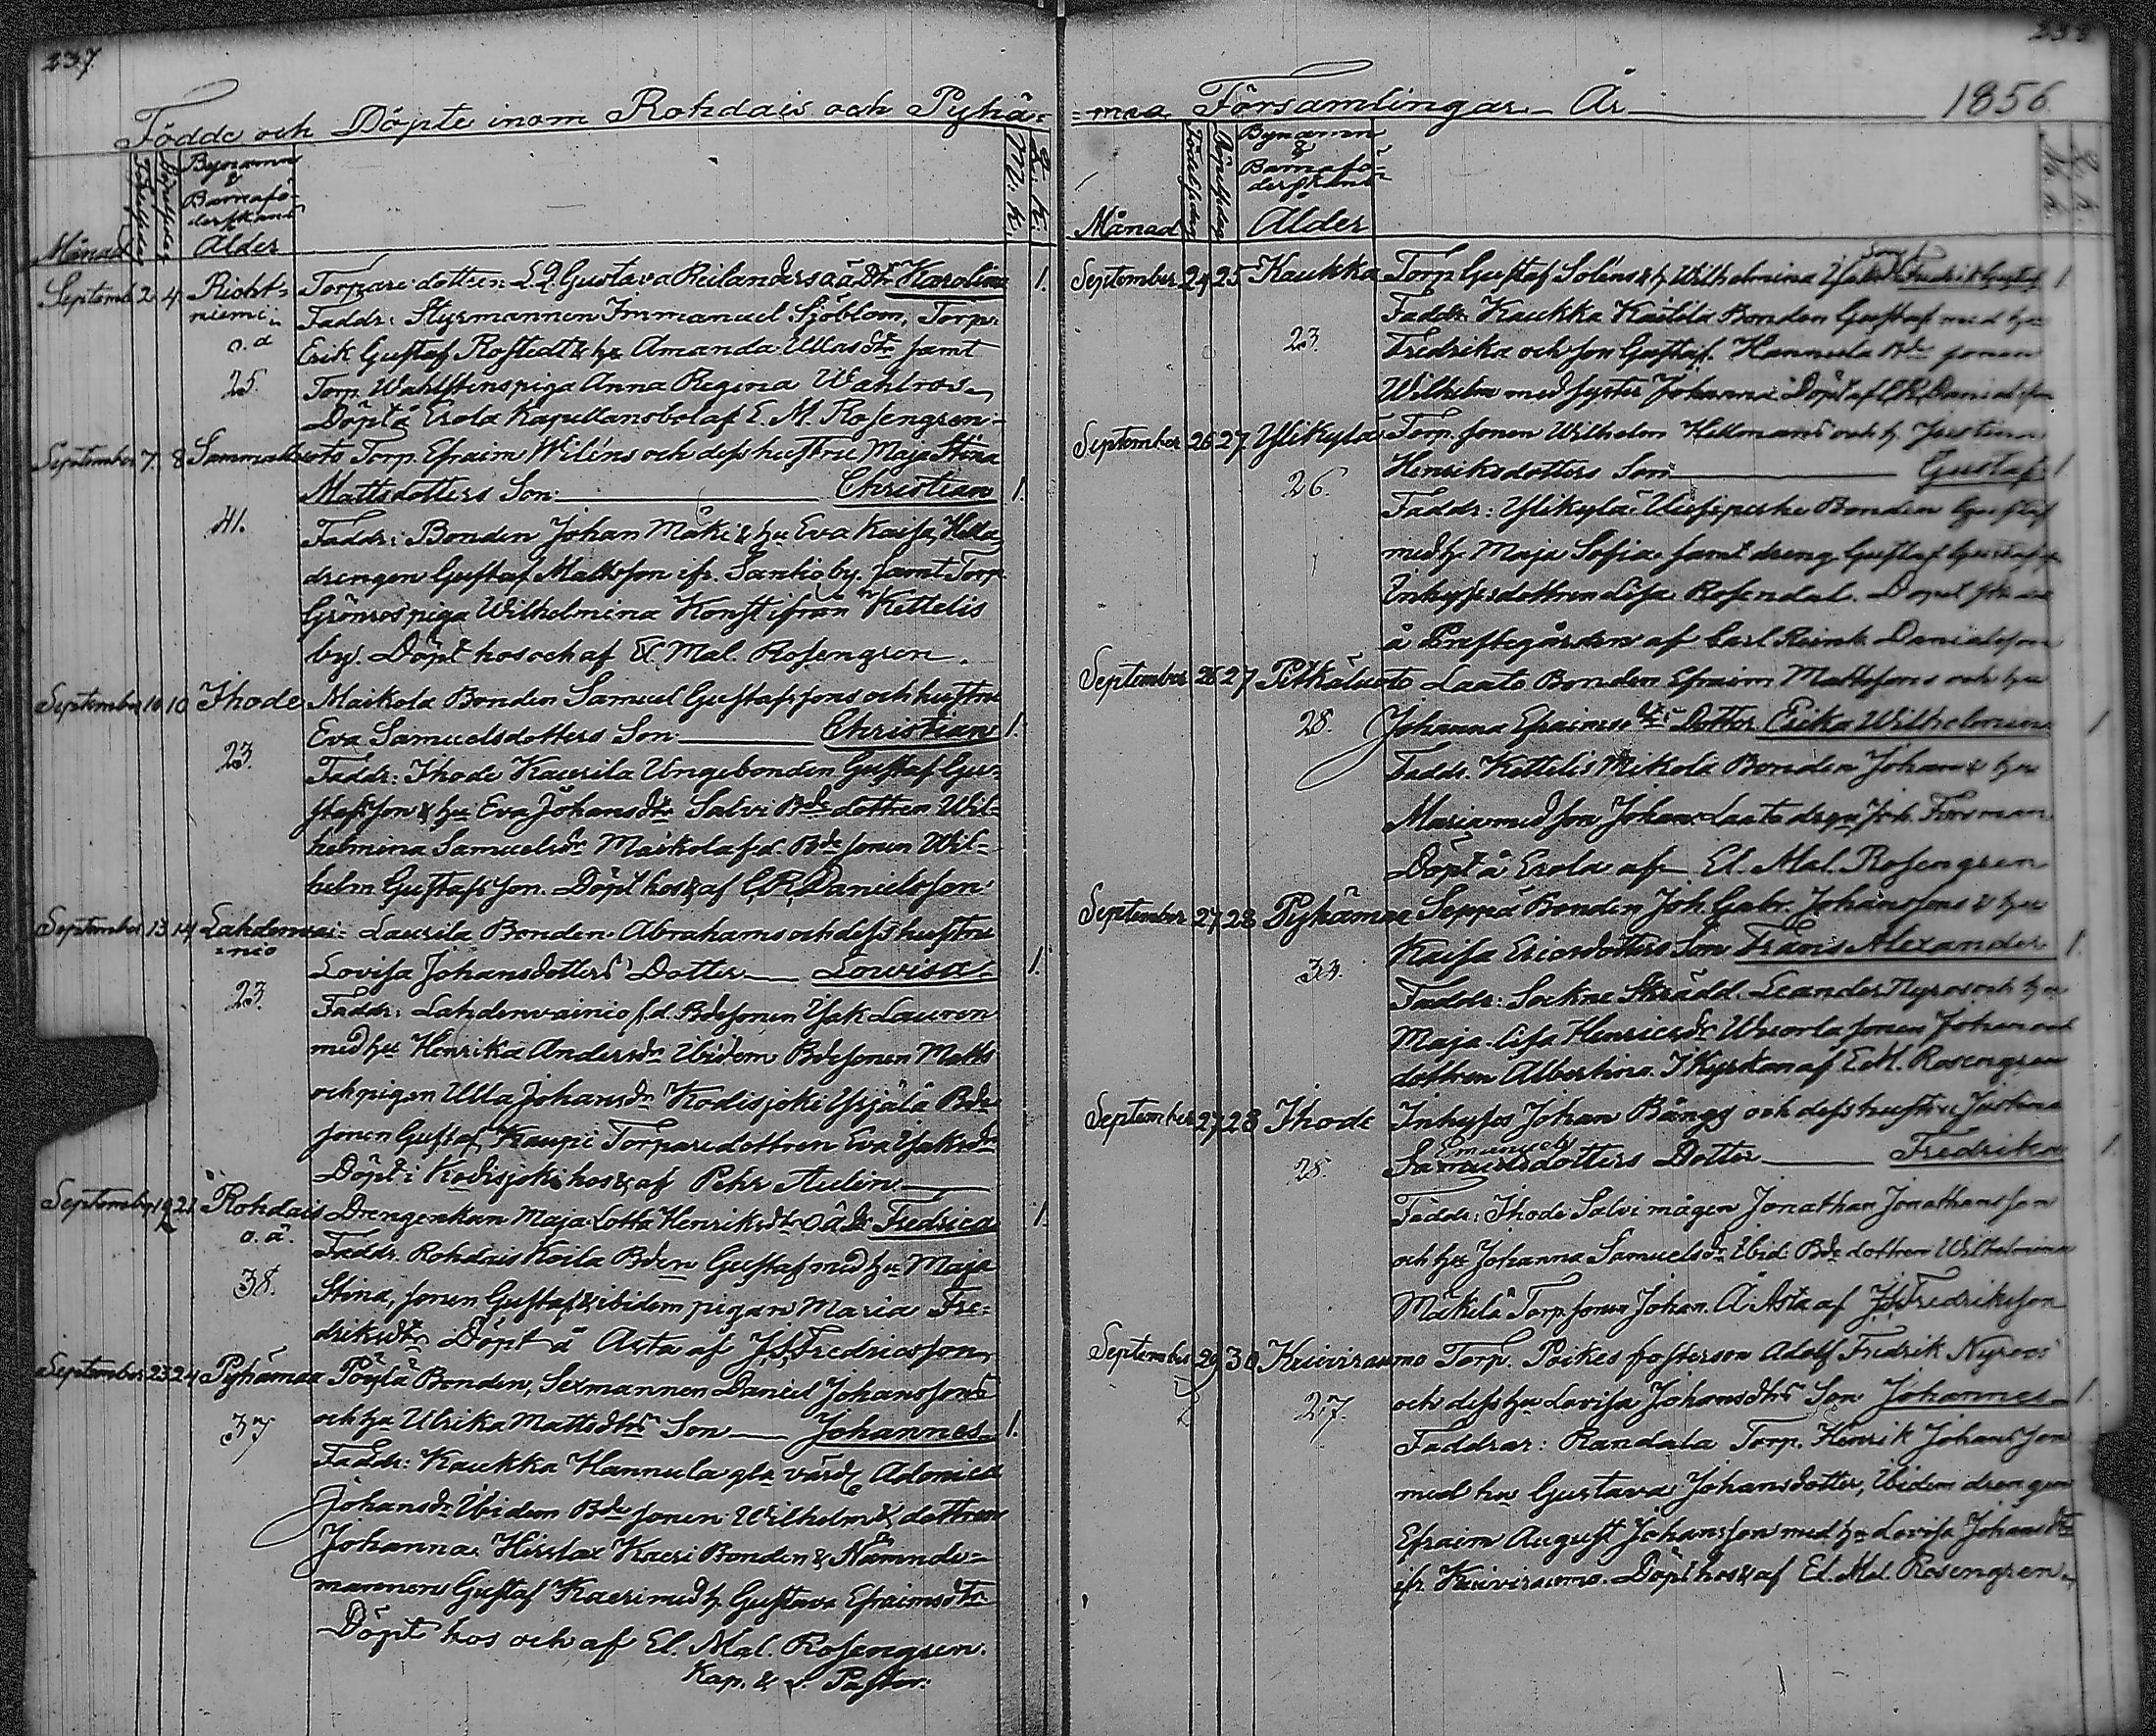 237.
Födde och Döpte inom Rohdais och Pyhä-
Månad
Födelsedag
Döpelsedag
Bynamn
&
Barnafö-
derskans
Ålder
M. k.
Q. k.
Septemb. 2 4 Richt- Torpare dottren L. Q. Gustava Reilanders o ä Dtr Karolina 1.
niemi Faddr: Styrmannen Immanuel Sjöblom, Torp.
o. ä Erik Gustaf Rostedt & hu Amanda Ullasdtr samt
25. Torp. Wahlstens piga Anna Regina Wahlros
Döpt å Erola Kapellansbol af E. M. Rosengren
September 7 8 Sammaluoto Torp. Efraim Wiléns och dess hustru Maja Stina
Mattsdotters Son: Christian 1.
41. Faddr: Bonden Johan Mäki & hu Eva Kaisa,
drengen Gustaf Mattsson ifr. Santio by. samt Torp
Grönros piga Wilhelmina Konst ifrån Kettelis
by. Döpt hos och af El. Mal. Rosengren.
September 10 10 Ihode Maikola Bonden Samuel Gustafssons och hustru
Eva Samuelsdotters Son: Christian 1.
23. Faddr: Ihode Kaurila Ungebonden Gustaf Gu-
stafsson & hu Eva Johansdtr Salvi Bde dottren Wil-
helmina Samuelsdr Maikola f.d. Bde sonen Wil-
helm Gustafsson. Döpt hos & af C. R. Danielsson
September 13 14 Lahdenwai- Laurila Bonden Abrahams och dess hustru
nio Lovisa Johansdotters Dotter Lowisa 1.
23. Faddr: Lahdenwainio f.d. Bdesonen Isak Lauren
med hu Henrika Andersdr Ibidem Bdesonen Matts
och pigan Ulla Johansdr Kodisjoki Yrjälä Bde
sonen Gustaf, Kaupi Torparedottren Eva Isaksdr
Döpt i Kodisjoki hos & af Pehr Aulin.
September 19 21 Rohdais Drengenkan Maja Lotta Henriksdtr o. ä Dr Fredrica 1.
o. ä. Faddr. Rohdais Koila Bden Gustaf med hu Maja
38. Stina, sonen Gustaf & ibidem pigan Maria Fre-
driksdtr Döpt å Arta af J. J. Fredricsson
September 23 24 Pyhämaa Pöylä Bonden, Sexmannen Daniel Johanssons
37 och hu Ulrika Mattsdtrs Son Johannes 1.
Faddr: Kaukka Hannula gla värd Adonica
Johansdr Ibidem Bde sonen Wilhelm & dottren
Johanna. Hirslax Kaeri Bonden & Nämnde-
mannen Gustaf Kaeri med h. Gustava Efraimsdtr
Döpt hos och af El. Mal. Rosengren.
Kap. & v. Pastor.
238
maa Församlingar År 1856.
Månad
Födelsedag
Döpelsedag
Bynamn
&
Barnafö-
derskans
Ålder
M. k.
Q. k.
September 24 25 Kaukka Torp Gustaf Soléns & h. Wilhelmina Son Fredrik Gustaf 1
Faddr. Kaukka Kailila Bonden Gustaf med hu
23. Fredrika och son Gustaf. Hannula Bde sonen
Wilhelm med syster Johanna Döpt af C. R. Danielsson
September 26 27 Ylikylä Torp. sonen Wilhelm Hellmans och h. Justina
26. Henriksdotters Son Gustaf 1
Faddr: Ylikylä Uusipuske Bonden Gustaf
med h. Maja Sofia. samt dreng Gustaf
Inhysesdottren Lisa Rosendal. Döpt
å Prestegården af Carl Reink. Danielsson
September 26 27 Pitkäluoto Laato Bonden Efraim Mattssons och hu
28. Johanna Efraims dtrs Dotter Erika Wilhelmina 1
Faddr. Kettelis Mikola Bonden Johan & hu
Maria med son Johan. Laato drgn Joh. Forsman
Döpt å Erola af El. Mal. Rosengren
September 27 28 Pyhämaa Seppä Bonden Joh. Gabr. Johanssons & hu
33. Kaisa Ericsdotters Son Frans Alexander 1.
Faddr: Sockne Skrädd. Leander Nyros och hu
Maja Lisa Henricsdr Wuorla sonen Johan och
dottren Albertina. I Kyrkan af E. M. Rosengren
September 27 28 Ihode Inhyses Johan Bångs och dess hustru Justina
Emanuels
28. Samuelsdotters Dotter Fredrika 1.
Faddr: Ihode Salvi mågen Jonathan Jonathansson
och hu Johanna Samuelsdr Ibid. Bde dottren Wilhelmina
Mäkelä Torp sonen Johan. Å Arta af J. J. Fredriksson
September 29 30 Kuiviraumo Torp. Poikes fosterson Adolf Fredrik Nyroos
27. och dess hu Lovisa Johansdtrs Son Johannes 1.
Faddrar: Randala Torp. Henrik Johansson
med hu Gustava Johansdotter, Ibidem drengen
Efraim August Johansson med hu Lovisa Johansdtr
ifr. Kuiviraumo. Döpt hos & af El. Mal. Rosengren.